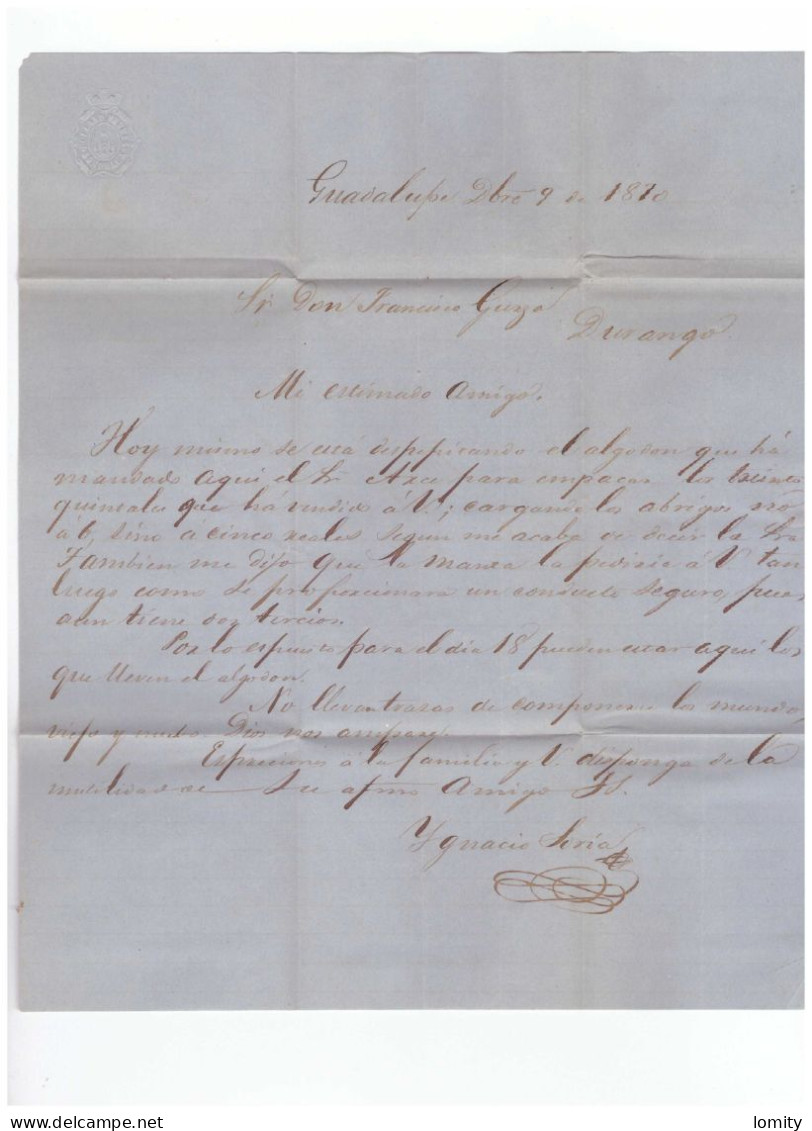 Guadalupe Dbre 9 de 1870
Sr Don Francisco Gurza
Durango
Mi estimado Amigo.
Hoy mismo se está despepitando el algodon que há
mandado aqui el Sr para empacar los treinta
quintales que há vendido á V; cargando los abrigos no
á 6, sino á cinco reales segun me acaba de decir la Sra
Tambien me dijo que la manta la pediria á V tan
luego como se proporcionara un conducto seguro, pues
aun tiene dos tercios.
Por lo espuesto para el dia 18 pueden estar aqui los
que lleven el algodon.
No llevan trazas de componerse los mundos,
viejo y nuevo. Dios nos ampare.
Espreciones á la familia y V. disponga de la
inutilidad de Su afmo Amigo
Ygnacio Soria
lomity